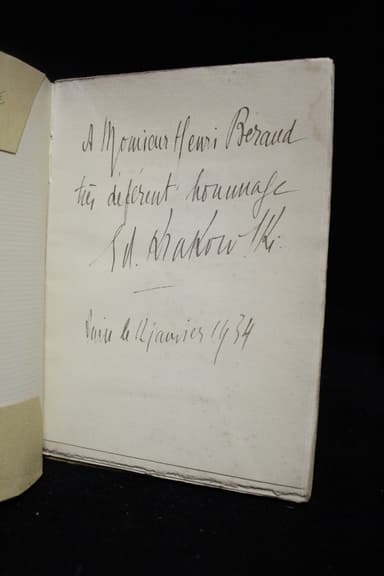 A Monsieur Henri Béraud
très déférent hommage
Ed. Krakowski.
le 12 janvier 1934